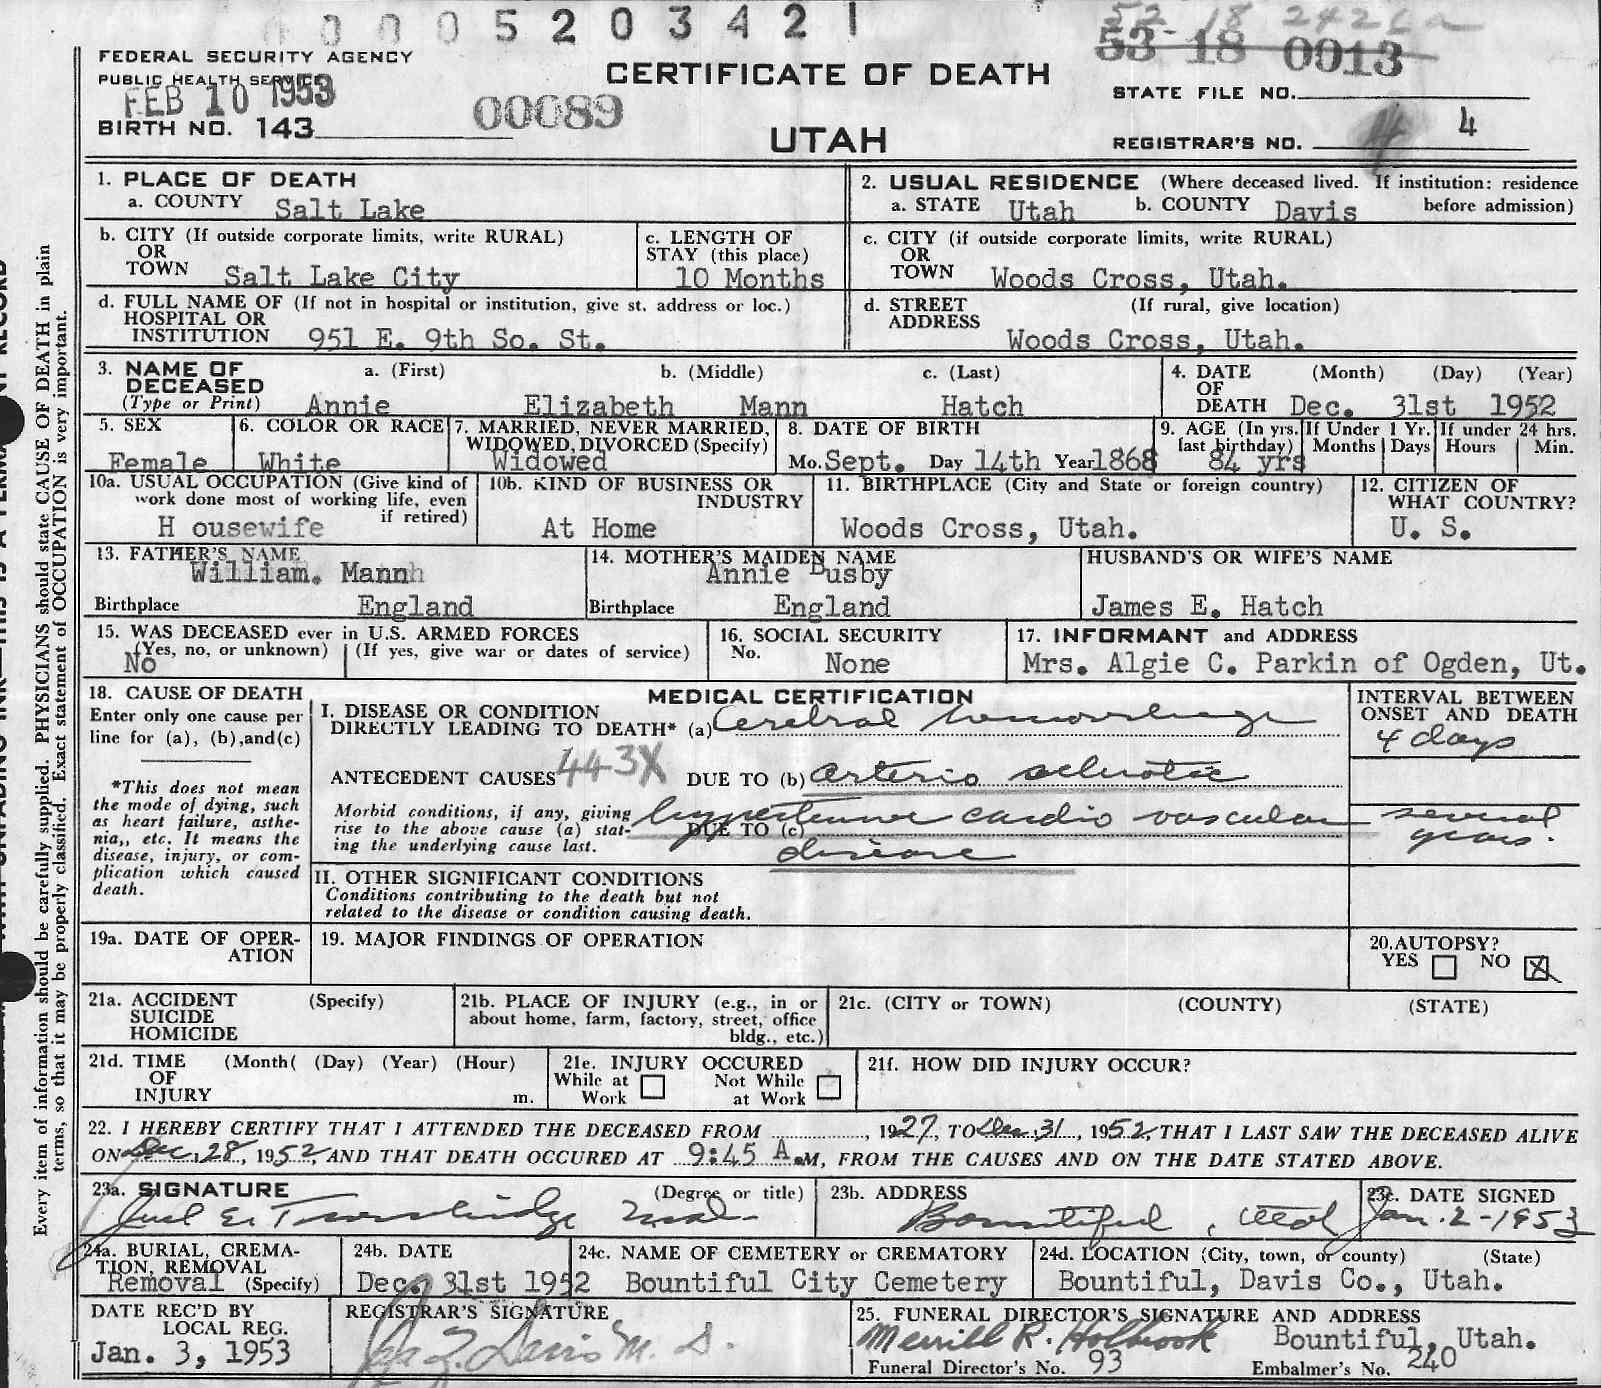 00005203421
52-18 242
53-18 0013
FEDERAL SECURITY AGENCY
PUBLIC HEALTH SERVICE
FEB 10 1953
BIRTH NO. 143
00089
CERTIFICATE OF DEATH
UTAH
STATE FILE NO.
REGISTRAR'S NO. 4
1. PLACE OF DEATH
a. COUNTY Salt Lake
2. USUAL RESIDENCE (Where deceased lived. If institution: residence before admission)
a. STATE Utah b. COUNTY Davis
b. CITY (If outside corporate limits, write RURAL)
OR
TOWN Salt Lake City
c. LENGTH OF
STAY (this place)
10 Months
c. CITY (if outside corporate limits, write RURAL)
OR
TOWN Woods Cross, Utah.
d. FULL NAME OF (If not in hospital or institution, give st. address or loc.)
HOSPITAL OR
INSTITUTION 951 E. 9th So. St.
d. STREET (If rural, give location)
ADDRESS
Woods Cross, Utah.
3. NAME OF DECEASED
(Type or Print)
a. (First) b. (Middle) c. (Last)
Annie Elizabeth Mann Hatch
4. DATE (Month) (Day) (Year)
OF
DEATH Dec. 31st 1952
5. SEX
Female
6. COLOR OR RACE
White
7. MARRIED, NEVER MARRIED,
WIDOWED, DIVORCED (Specify)
Widowed
8. DATE OF BIRTH
Mo. Sept. Day 14th Year 1868
9. AGE (In yrs. last birthday) 84 yrs
If Under 1 Yr. Months Days
If under 24 hrs. Hours Min.
10a. USUAL OCCUPATION (Give kind of
work done most of working life, even
if retired)
H ousewife
10b. KIND OF BUSINESS OR
INDUSTRY
At Home
11. BIRTHPLACE (City and State or foreign country)
Woods Cross, Utah.
12. CITIZEN OF
WHAT COUNTRY?
U. S.
13. FATHER'S NAME
William. Mann
Birthplace England
14. MOTHER'S MAIDEN NAME
Annie Busby
Birthplace England
HUSBAND'S OR WIFE'S NAME
James E. Hatch
15. WAS DECEASED ever in U.S. ARMED FORCES
(Yes, no, or unknown) (If yes, give war or dates of service)
No
16. SOCIAL SECURITY
No. None
17. INFORMANT and ADDRESS
Mrs. Algie C. Parkin of Ogden, Ut.
18. CAUSE OF DEATH
Enter only one cause per
line for (a), (b),and(c)
*This does not mean
the mode of dying, such
as heart failure, asthe-
nia,, etc. It means the
disease, injury, or com-
plication which caused
death.
MEDICAL CERTIFICATION
I. DISEASE OR CONDITION
DIRECTLY LEADING TO DEATH* (a) Cerebral hemorrhage
INTERVAL BETWEEN
ONSET AND DEATH
4 days
ANTECEDENT CAUSES 443X DUE TO (b) arterio sclerotic
Morbid conditions, if any, giving
rise to the above cause (a) stat-
ing the underlying cause last.
DUE TO (c)
hypertensive cardio vascular
disease
several
years.
II. OTHER SIGNIFICANT CONDITIONS
Conditions contributing to the death but not
related to the disease or condition causing death.
19a. DATE OF OPER-
ATION
19. MAJOR FINDINGS OF OPERATION
20. AUTOPSY?
YES NO X
21a. ACCIDENT (Specify)
SUICIDE
HOMICIDE
21b. PLACE OF INJURY (e.g., in or
about home, farm, factory, street, office
bldg., etc.)
21c. (CITY or TOWN) (COUNTY) (STATE)
21d. TIME (Month( (Day) (Year) (Hour)
OF
INJURY m.
21e. INJURY OCCURED
While at Work Not While at Work
21f. HOW DID INJURY OCCUR?
22. I HEREBY CERTIFY THAT I ATTENDED THE DECEASED FROM , 1927, TO Dec. 31, 1952, THAT I LAST SAW THE DECEASED ALIVE
ON Dec. 28, 1952, AND THAT DEATH OCCURED AT 9:45 A.M, FROM THE CAUSES AND ON THE DATE STATED ABOVE.
23a. SIGNATURE (Degree or title)
Trowbridge
23b. ADDRESS
Bountiful, Utah
23c. DATE SIGNED
Jan. 2-1953
24a. BURIAL, CREMA-
TION, REMOVAL
Removal (Specify)
24b. DATE
Dec. 31st 1952
24c. NAME OF CEMETERY or CREMATORY
Bountiful City Cemetery
24d. LOCATION (City, town, or county) (State)
Bountiful, Davis Co., Utah.
DATE REC'D BY
LOCAL REG.
Jan. 3, 1953
REGISTRAR'S SIGNATURE
Davis M. D.
25. FUNERAL DIRECTOR'S SIGNATURE AND ADDRESS
Merrill R. Holbrook Bountiful, Utah.
Funeral Director's No. 93 Embalmer's No. 240
Every item of information should be carefully supplied. PHYSICIANS should state CAUSE OF DEATH in plain
terms, so that it may be properly classified. Exact statement of OCCUPATION is very important.